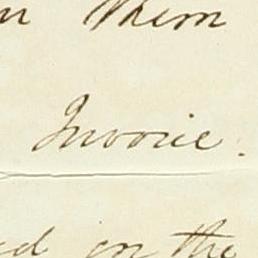 them
Invoice.
on the